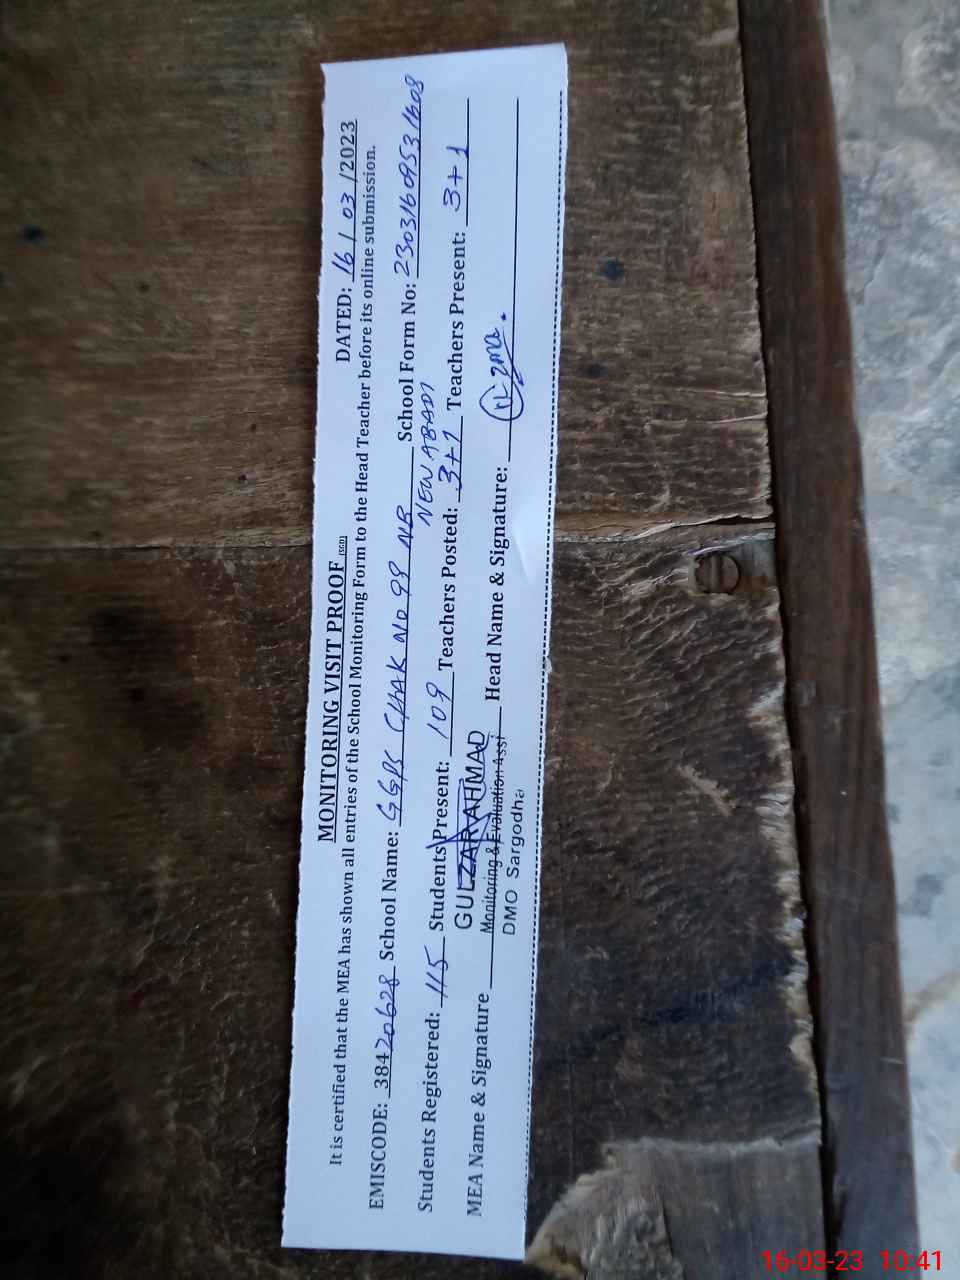 MONITORING VISIT PROOF (SGD) DATED: 16 / 03 /2023
It is certified that the MEA has shown all entries of the School Monitoring Form to the Head Teacher before its online submission.
EMISCODE: 38420628 School Name: GGPS CHAK NO 99 NB School Form No: 23031609531608
NEW ABADI
Students Registered: 115 Students Present: 109 Teachers Posted: 3+1 Teachers Present: 3+1
GULZAR AHMAD
MEA Name & Signature Head Name & Signature:
Monitoring & Evaluation Assi
DMO Sargodha
16-03-23 10:41